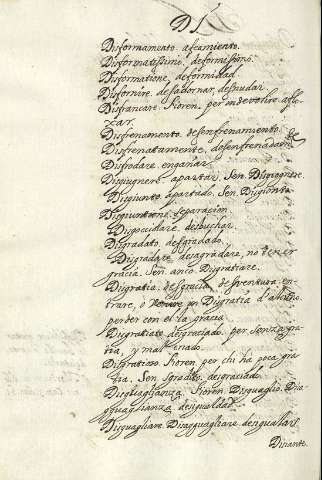 DI.
Disformamento. afeamiento.
Disformatissimo, deformissimo.
Disformatione, deformidad.
Disfornire. desadornar, desnudar.
Disfrancare. Fioren. per indevolire aflo-
xar.
Disfrenamento. desenfrenamiento.
Disfrenattamente, desenfrenadam
Disfrodare. engañar.
Disgiugnere apartar. Sen. Disgiognere.
Disgiunto apartado. Sen. Disgionto.
Disgiuntione. separacion.
Disgoccidare. desbuchar.
Disgradato desgradado.
Disgradare, desagradare, no tener
gracia, Sen. anco Disgratiare.
Disgratia, desgracia, desventura, en-
trare, o in Disgratia d'alcuno
perder con el la gracia.
Disgratiato desgraciado. per senza gra-
tia, y mal criado.
Disgratioso Fioren. per chi ha poca gra-
tia. Sen. sgradito, desgraciado.
Disguaglianza. Fioren. Disguaglio. Dia-
gguaglianza desigualdad.
Disguagliare. Disagguagliare. desigualar.
Disiante.